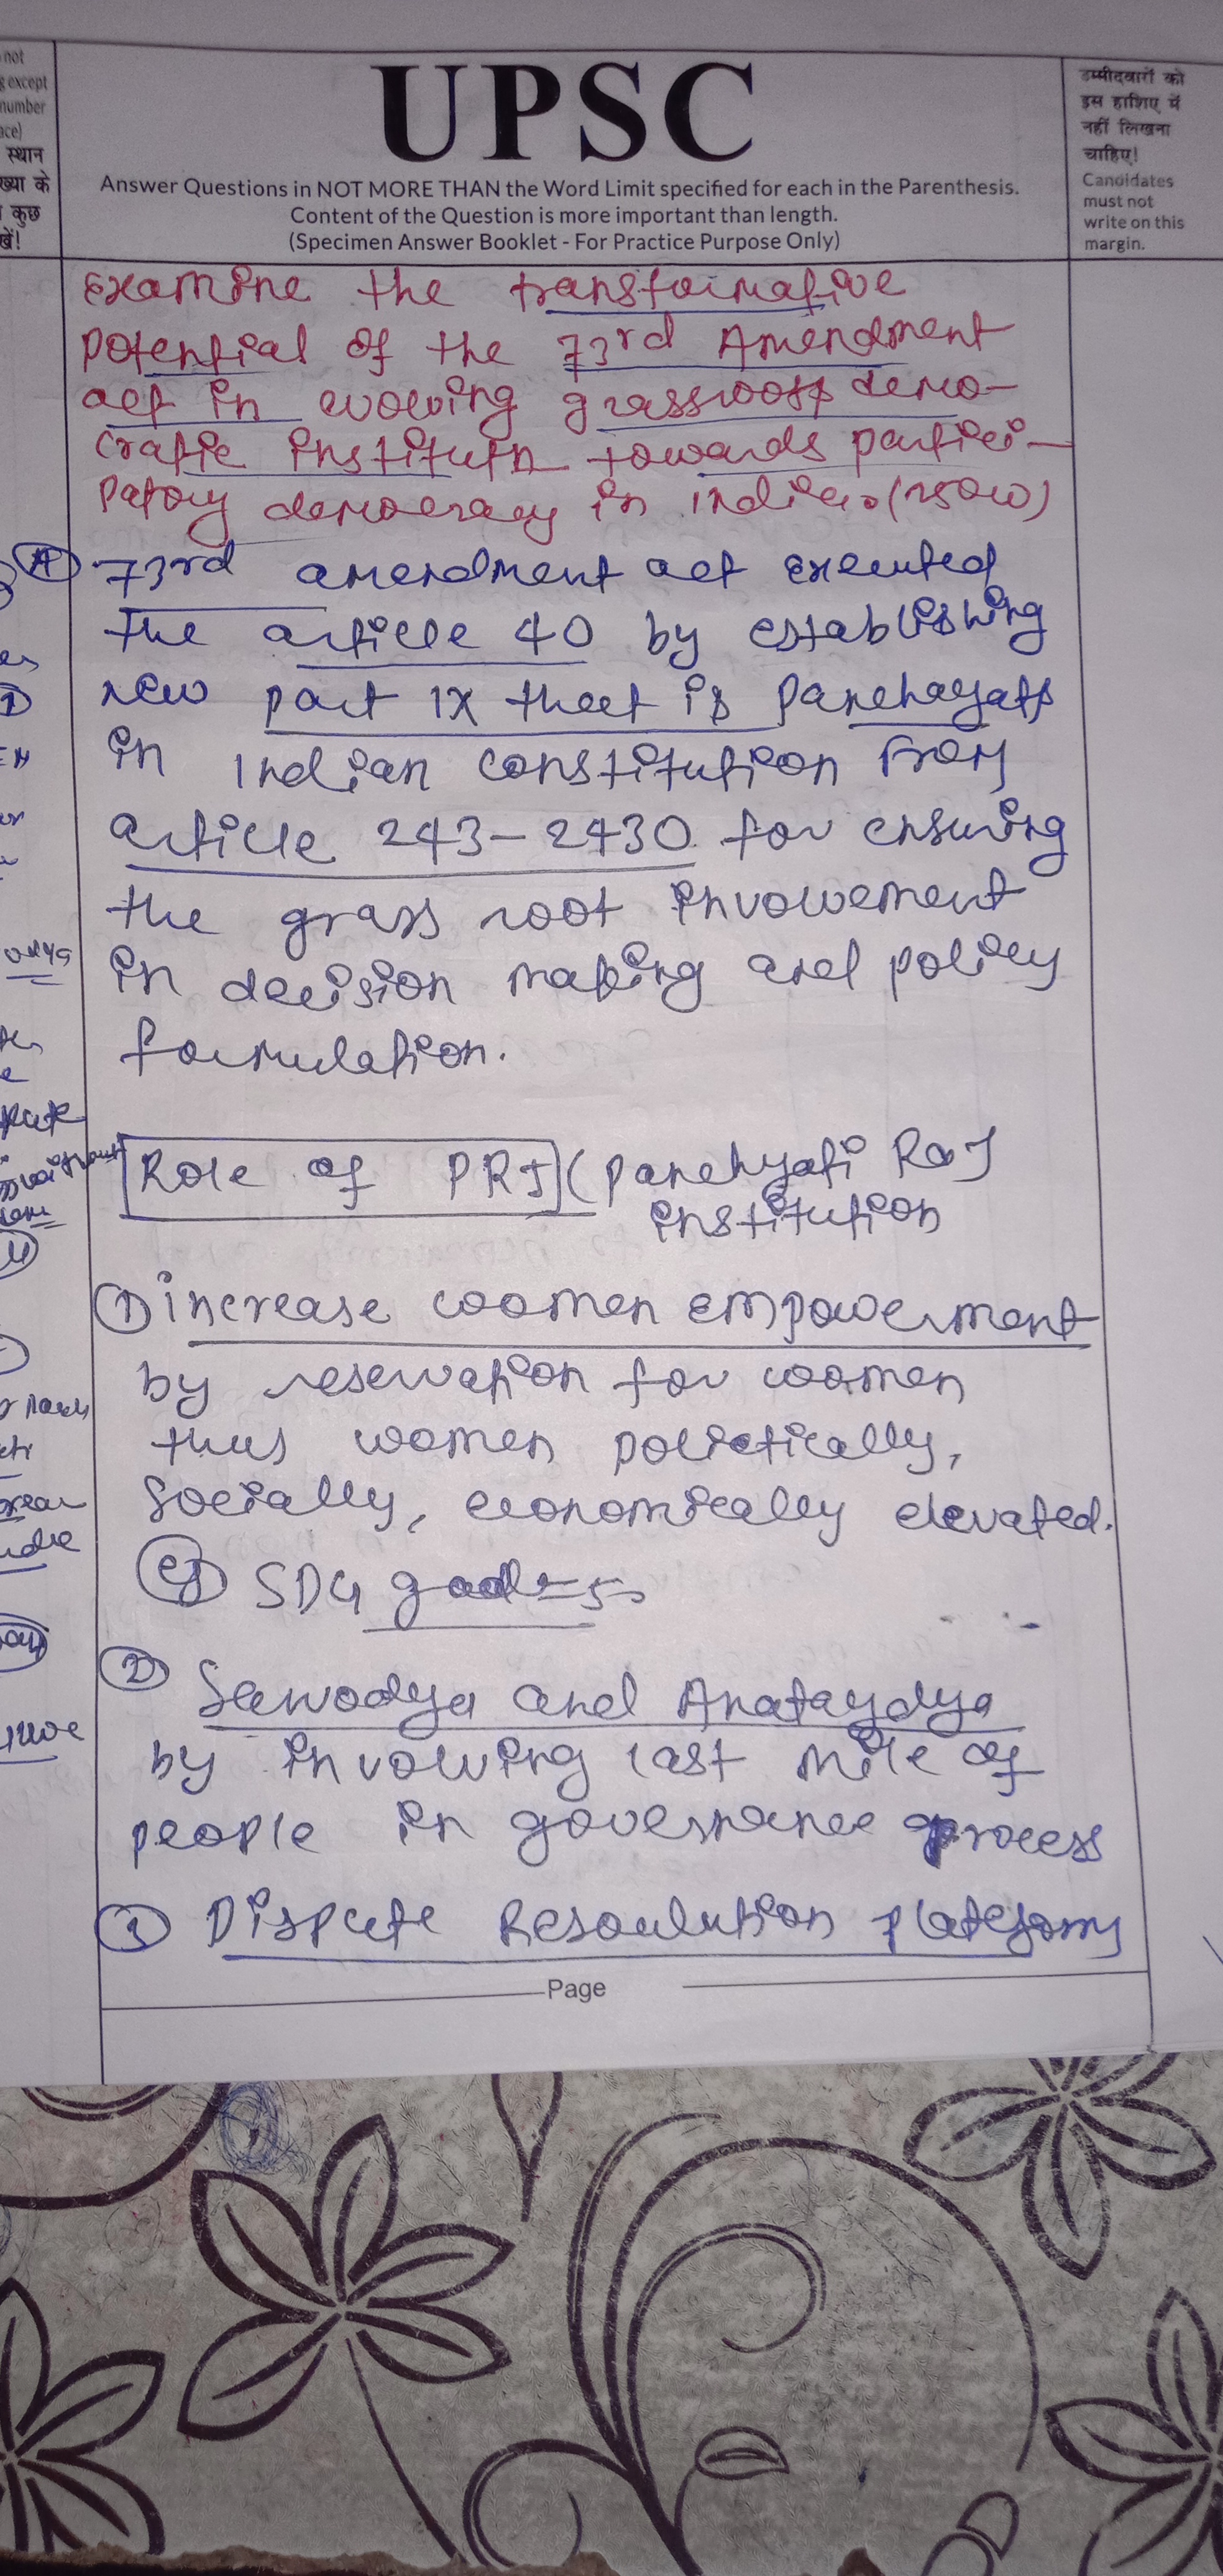 UPSC
Answer Questions in NOT MORE THAN the Word Limit specified for each in the Parenthesis.
Content of the Question is more important than length.
(Specimen Answer Booklet - For Practice Purpose Only)
not
g except
number
ace)
स्थान
ख्या के
कुछ
खें!
उम्मीदवारों को
इस हाशिए में
नहीं लिखना
चाहिए!
Candidates
must not
write on this
margin.
Examine the transformative
potential of the 73rd Amendment
act in evolving grassroots demo-
cratic institutn towards partici-
patory democracy in India. (250w)
(A) 73rd amendment act executed
the article 40 by establishing
new part IX that is panchayats
in Indian constitution from
article 243-243O for ensuring
the grass root involvement
in decision making and policy
formulation.
Role of PRI (Panchyati Raj
institution
(1) increase women empowerment
by reservation for women
thus women polictically,
socially, economically elevated.
eg SDG goal-5
(2) Sarvodya and Anataydya
by involving last mile of
people in governance process
(3) Dispute Resoulution platform
Page